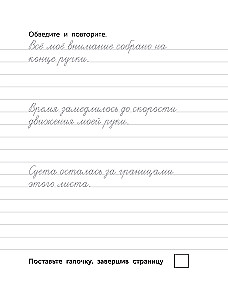 Обведите и повторите.
Всё моё внимание собрано на
конце ручки.
Время замедлилось до скорости
движения моей руки.
Суета осталась за границами
этого листа.
Поставьте галочку, завершив страницу